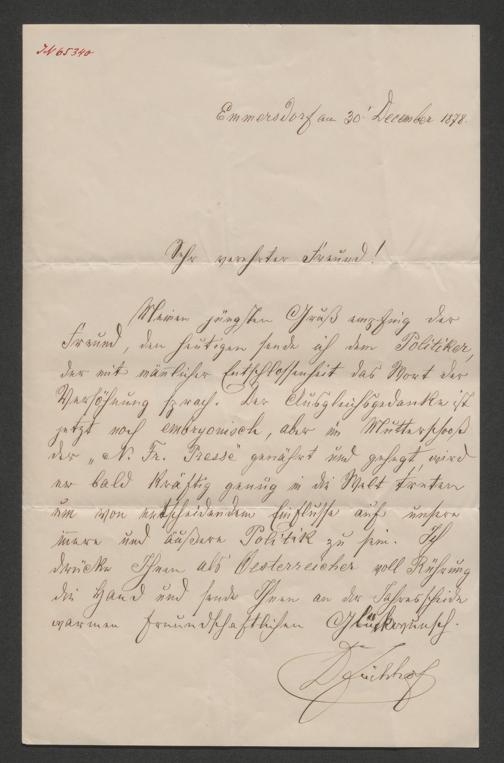 IN 65340
Emmersdorf am 30' December 1878.
Sehr verehrter Freund!
Meinen jüngsten Gruß empfing der
Freund, den heutigen sende ich dem Politiker,
der mit mänlicher Entschlossenheit das Wort der
Versöhnung sprach. Der Ausgleichsgedanke ist
jetzt noch embryonisch, aber im Mutterschooß
der „N. Fr. Presse" genährt und gehegt, wird
er bald kräftig genug in die Welt treten
um von entscheidendem Einflusse auf unsere
innere und äußere Politik zu sein. Ich
drücke Ihnen als Oesterreicher voll Rührung
die Hand und sende Ihnen an der Jahresscheide
warmen freundschaftlichen Glückwunsch.